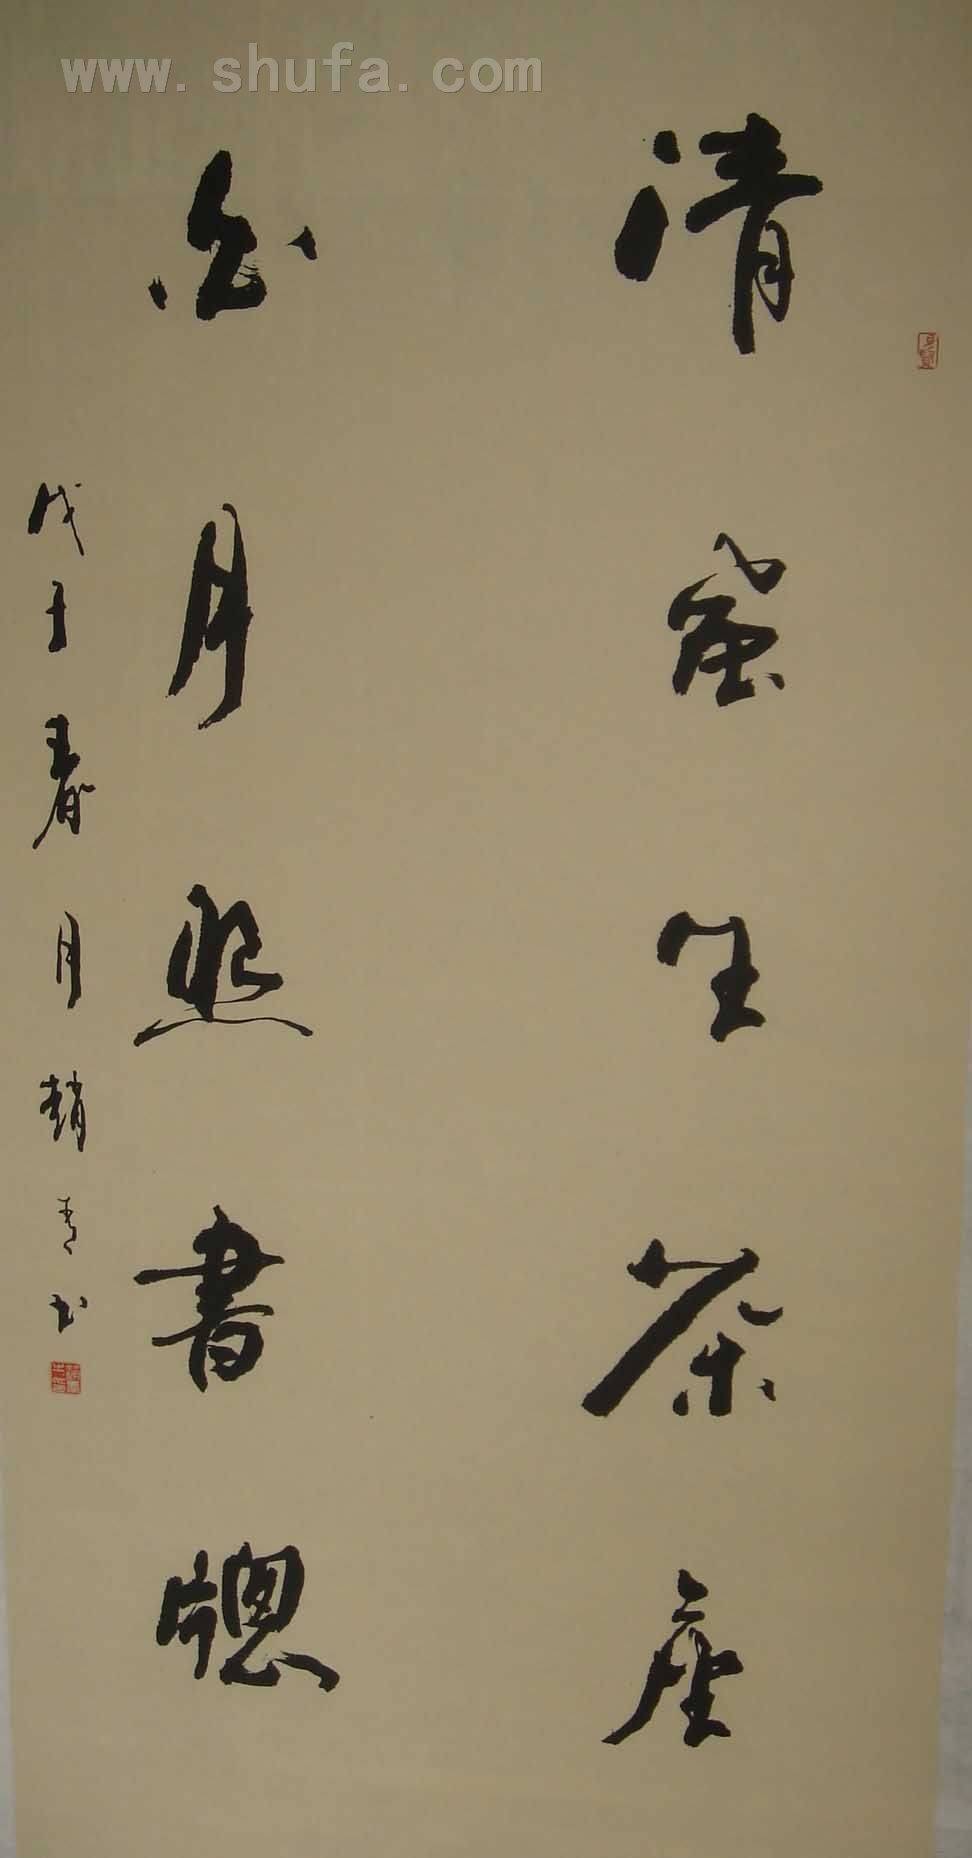 www.shufa.com
清生茶座
月照書牕
戊子春月趙青书